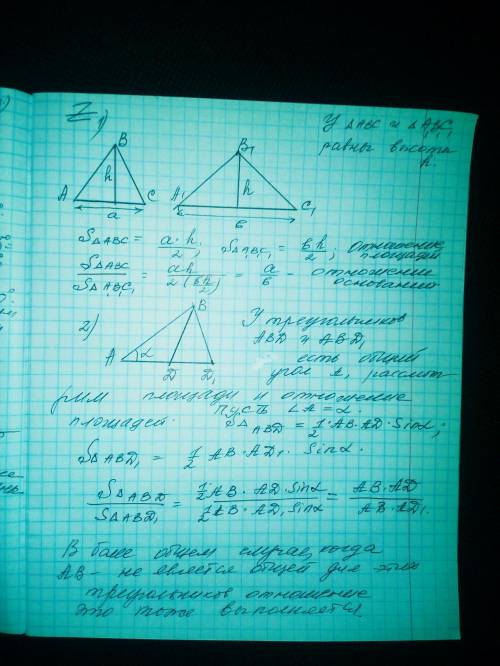 1)
У △ABC и △A₁B₁C₁
равны высоты
h.
B
h
A C
a
B₁
h
A₁ C₁
в
S△ABC = a·h/2; S△A₁B₁C₁ = вh/2; отношение
площадей
S△ABC/S△A₁B₁C₁ = ah/2(вh/2) = a/в - отношение
оснований
2)
B
A α D D₁
У треугольников
ABD и ABD₁
есть общий
угол A, рассмот
рим площади и отношение
площадей. пусть ∠A = α.
S△ABD = 1/2·AB·AD·Sinα;
S△ABD₁ = 1/2 AB·AD₁·Sinα.
S△ABD/S△ABD₁ = 1/2 AB·AD·Sinα/1/2 AB·AD₁ Sinα = AB·AD/AB·AD₁.
В более общем случае, когда
AB - не евляется общей для этих
треугольников отношение
это тоже выполняется.